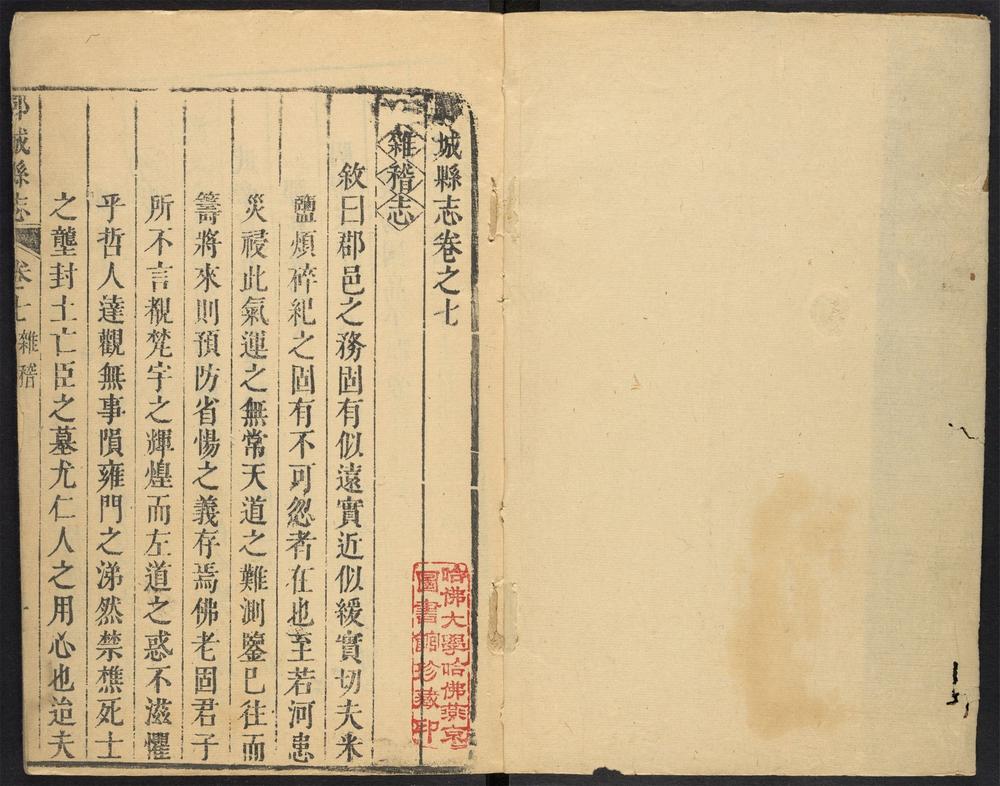 城縣志卷之七
雜稽志
敘曰郡邑之務固有似遠實近似緩實切夫米
鹽煩碎紀之固有不可忽者在也至若河患
災祲此氣運之無常天道之難測鑒已徃而
籌將來則預防省惕之義存焉佛老固君子
所不言覩梵宇之輝煌而左道之惑不滋懼
乎哲人達觀無事隕雍門之涕然禁樵死士
之壟封土亡臣之墓尤仁人之用心也迨夫
城縣志
卷七
雜稽
哈佛大學哈佛燕京
圖書館珍藏印